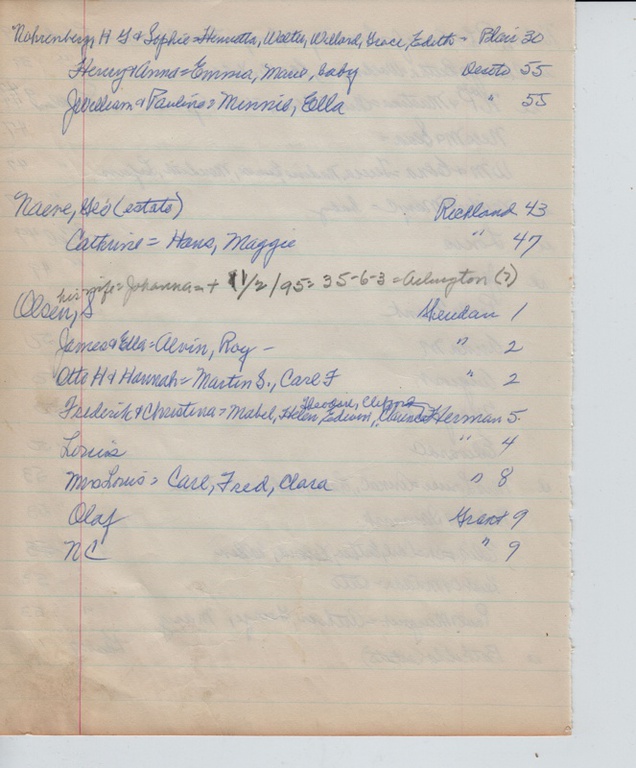 Nohrenberg, H G & Sophie = Henrietta, Walter, Willard, Grace, Edith - Blair 30
Henry & Anna = Emma, Marie, baby Desoto 55
William & Pauline = Minnie, Ella " 55
Naeve, Geo (estate) Richland 43
Cathrine = Hans, Maggie " 47
his wife = Johanna = + 11/2/95 = 35-6-3 = Arlington (?)
Olsen, S Sheridan 1
James & Ella = Alvin, Roy - " 2
Otto H & Hannah = Martin S., Carl F " 2
Theodore, Clifford
Frederik & Christina = Mabel, Helen, Edwin, Clarence Herman 5
Louis " 4
Mrs Louis = Carl, Fred, Clara " 8
Olaf Grant 9
NC " 9